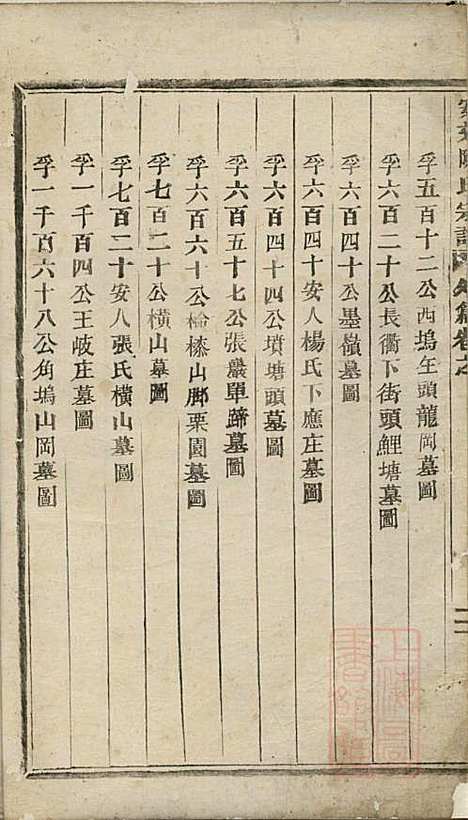 孚五百十二公西塢坐頭龍岡墓圖
孚六百二十公長衢下街頭鯉塘墓圖
孚六百四十公墨嶺墓圖
孚六百四十安人楊氏下應庄墓圖
孚六百四十四公墳塘頭墓圖
孚六百五十七公張巖單蹄墓圖
孚六百六十公檜榛山脚栗園墓圖
孚七百二十公橫山墓圖
孚七百二十安人張氏橫山墓圖
孚一千百四公王岐庄墓圖
孚一千百六十八公角塢山岡墓圖